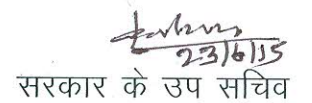 23/6/15
सरकार के उप सचिव